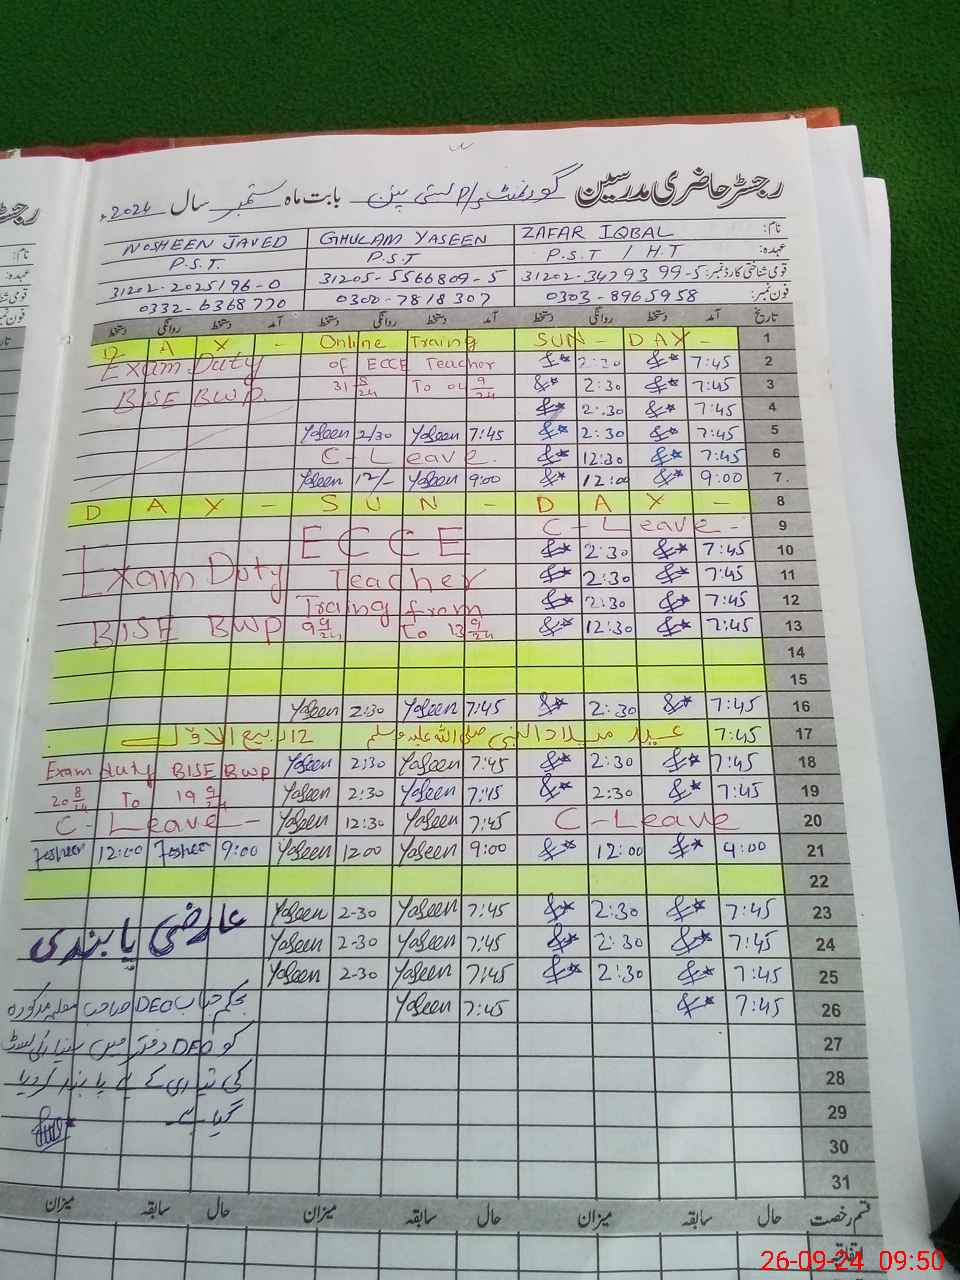 رجسٹر حاضری مدرسین گورنمنٹ P/S بستی بابت ماہ ستمبر سال 2024ء
نام: ZAFAR IQBAL GHULAM YASEEN NOSHEEN JAVED
عہدہ: P.S.T / H.T P.S.T P.S.T.
قومی شناختی کارڈ نمبر: 31202-3479399-5 31205-5566809-5 31202-2025196-0
فون نمبر: 0303-8965958 0302-7818307 0332-6368770
تاریخ آمد دستخط روانگی دستخط آمد دستخط روانگی دستخط آمد دستخط روانگی دستخط
D A Y - Online Traing SUN - DAY - 1
Exam Duty of ECCE Teacher 2:30 7:45 2
BISE BWP. 31 8/24 To 04 9/24 2:30 7:45 3
2:30 7:45 4
Yaseen 2/30 Yaseen 7:45 2:30 7:45 5
C - Leave. 12:30 7:45 6
Yaseen 12/- Yaseen 9:00 12:00 9:00 7.
D A Y - S U N - D A Y - 8
C - Leave - 9
E C C E 2:30 7:45 10
Exam Duty Teacher 2:30 7:45 11
Traing from 2:30 7:45 12
BISE BWP 9 9/24 To 13 9/24 12:30 7:45 13
14
15
Yaseen 2:30 Yaseen 7:45 2:30 7:45 16
12 ربیع الاوّل عید میلاد النبی صلی اللہ علیہ وسلم 7:45 17
Exam duty BISE BWP Yaseen 2:30 Yaseen 7:45 2:30 7:45 18
20 8/24 To 19 9/24 Yaseen 2:30 Yaseen 7:45 2:30 7:45 19
C - Leave - Yaseen 12:30 Yaseen 7:45 C - Leave 20
12:00 9:00 Yaseen 1200 Yaseen 9:00 12:00 9:00 21
22
عارضی پابندی Yaseen 2-30 Yaseen 7:45 2:30 7:45 23
Yaseen 2-30 Yaseen 7:45 2:30 7:45 24
Yaseen 2-30 Yaseen 7:45 2:30 7:45 25
بحکم جناب DEO صاحب معلمہ مذکورہ Yaseen 7:45 7:45 26
کو DEO دفتر میں سنیارٹی لسٹ 27
کی تیاری کے لیے پابند کر دیا 28
گیا ہے۔ 29
30
31
قسم رخصت حال سابقہ میزان حال سابقہ میزان حال سابقہ میزان
اتفاقیہ
26-09-24 09:50